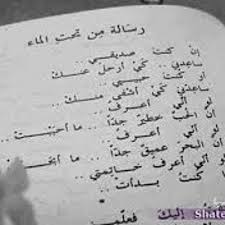 رسالة من تحت الماء
إن كنت صديقي ..
ساعدني .. كي أرحل عنك ..
كنت حبيبي ..
ساعدني .. كي أشفى منك ..
لو أني أعرف ..
أن الحب خطير جداً .. ما أحببت ..
لو أني أعرف ..
أن البحر عميق جداً .. ما
لو أني أعرف خاتمتي ..
ما كنت بدأت ..
إليك .. فعلم
Shate